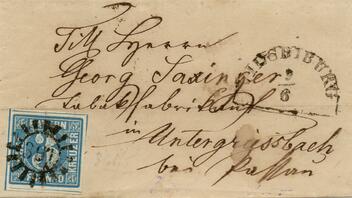 Titl Herrn
Georg Saxinger
Tabakfabrikant
in
Untergriesbach
bei Passau
9
6
KREUZER